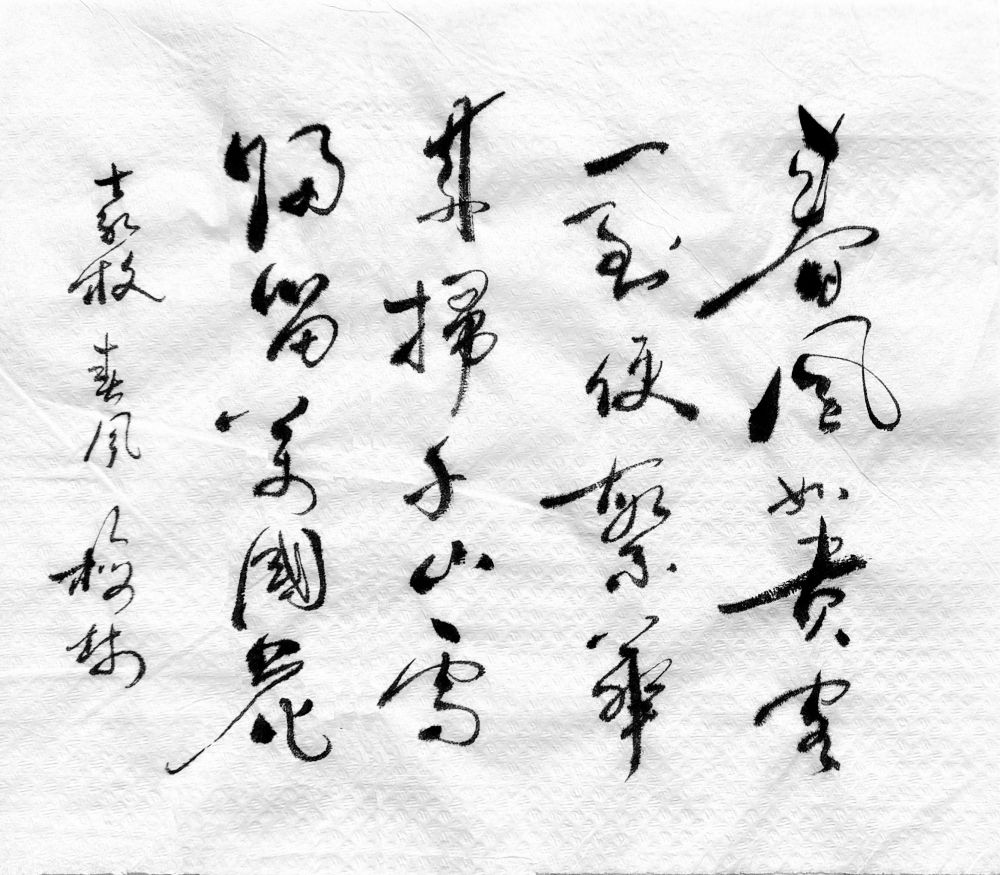 春風如貴客
一到便繁華
來掃千山雪
歸留萬國花
袁枚 春風